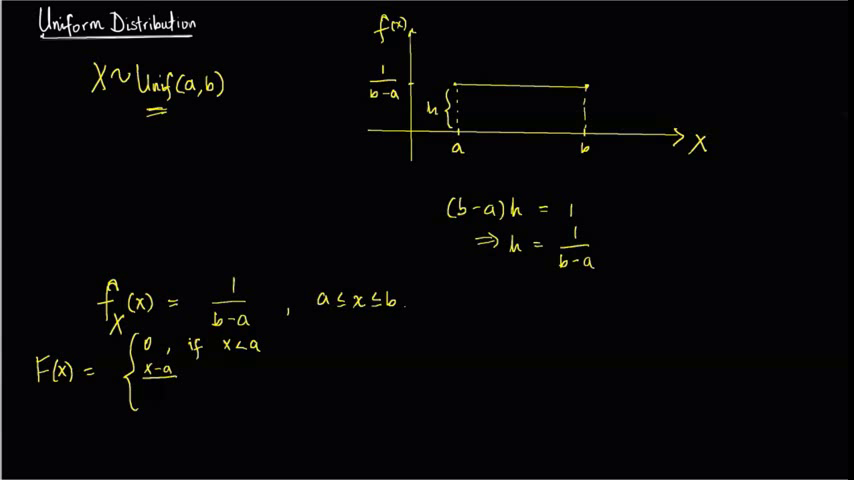 Uniform Distribution
X ~ Unif(a,b)
f(x)
1/(b-a)
h {
a b X
(b-a)h = 1
⇒ h = 1/(b-a)
f_X(x) = 1/(b-a) , a ≤ x ≤ b.
F(x) = { 0 , if x < a
x-a